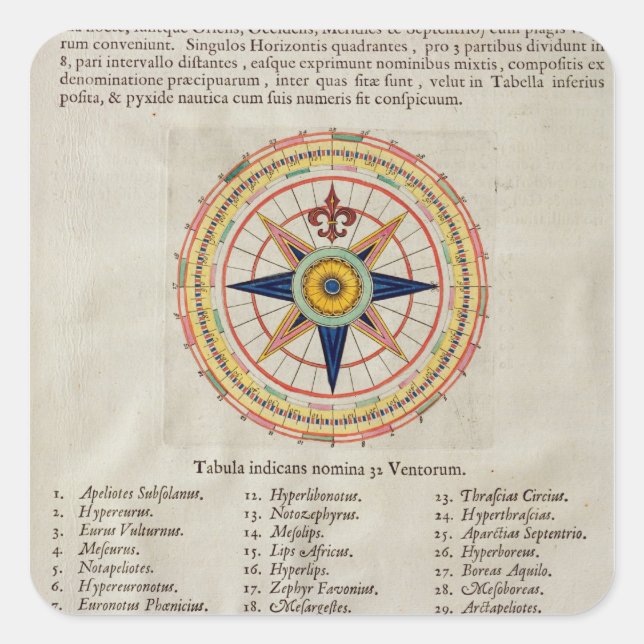 rum conveniunt. Singulos Horizontis quadrantes, pro 3 partibus dividunt in
8, pari intervallo diſtantes, eaſque exprimunt nominibus mixtis, compoſitis ex
denominatione præcipuarum, inter quas ſitæ ſunt, velut in Tabella inferius
poſita, & pyxide nautica cum ſuis numeris fit conſpicuum.
Tabula indicans nomina 32 Ventorum.
1. Apeliotes Subſolanus.
2. Hypereurus.
3. Eurus Vulturnus.
4. Meſeurus.
5. Notapeliotes.
6. Hypereuronotus.
7. Euronotus Phœnicius.
12. Hyperlibonotus.
13. Notozephyrus.
14. Meſolips.
15. Lips Africus.
16. Hyperlips.
17. Zephyr Favonius.
18. Meſargeſtes.
23. Thraſcias Circius.
24. Hyperthraſcias.
25. Aparctias Septentrio.
26. Hyperboreus.
27. Boreas Aquilo.
28. Meſoboreas.
29. Arctapeliotes.